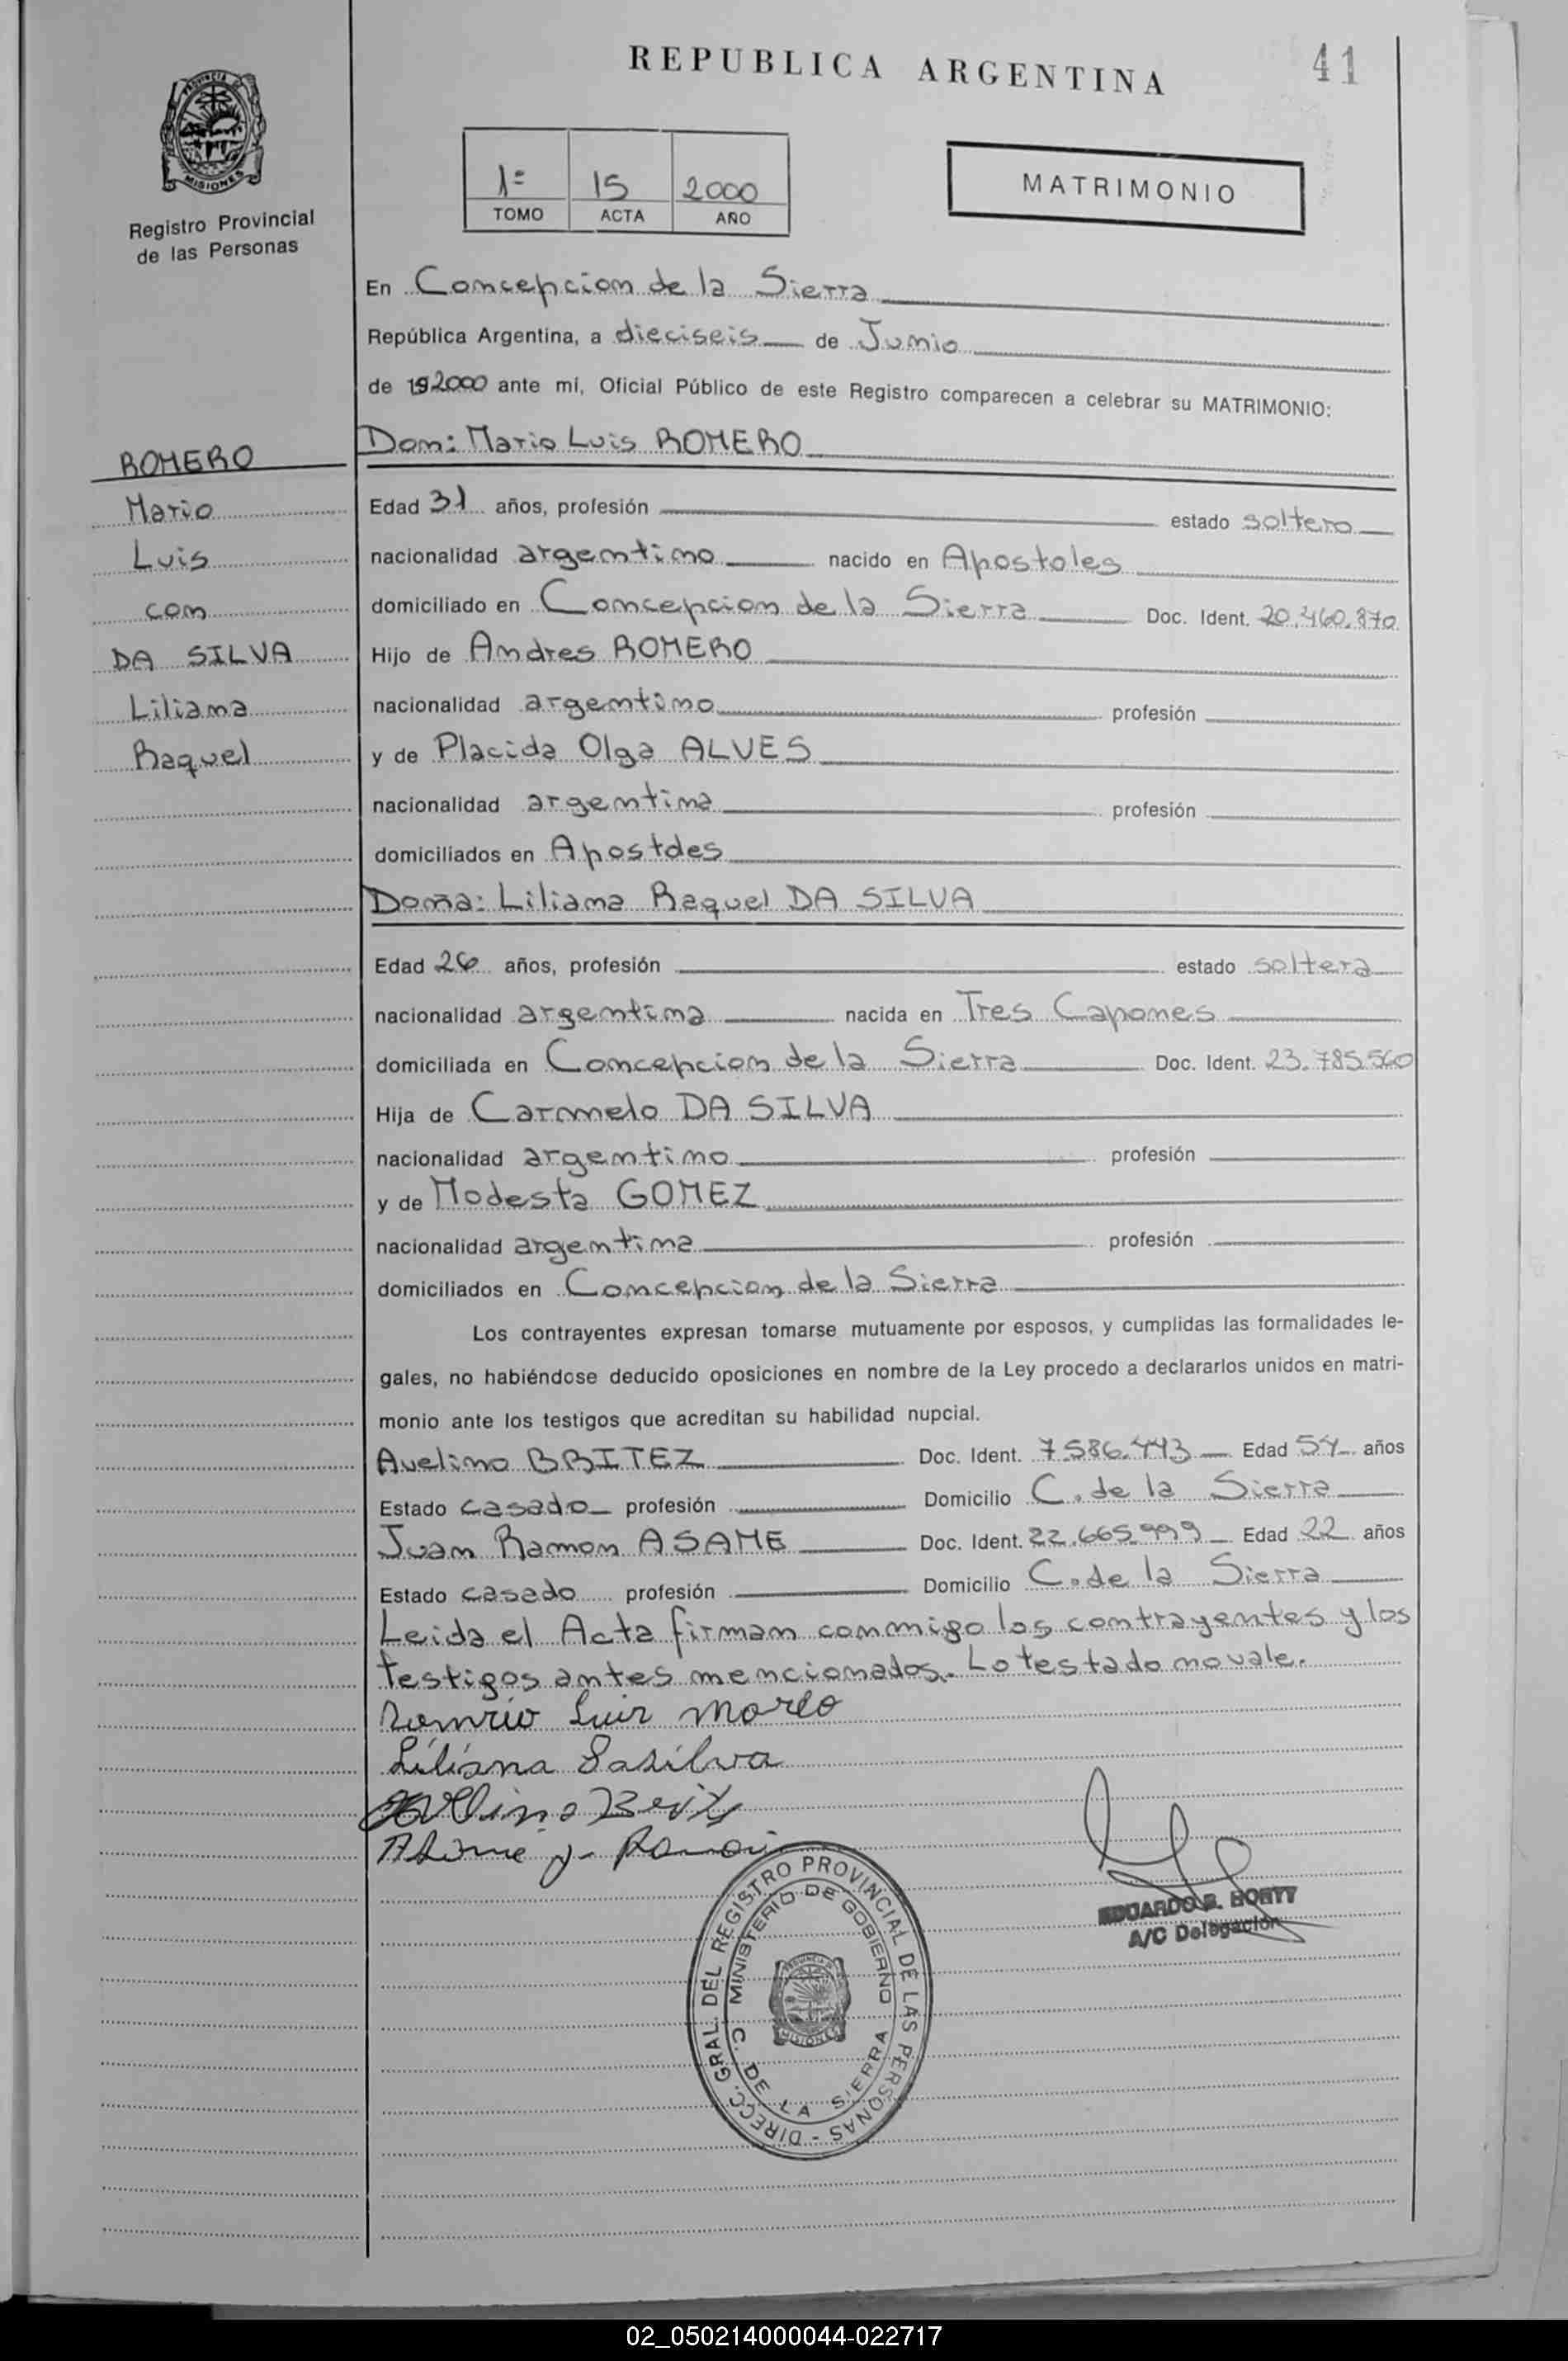 REPUBLICA ARGENTINA
41
PROVINCIA DE
MISIONES
Registro Provincial
de las Personas
1º 15 2000
TOMO ACTA AÑO
MATRIMONIO
En Concepcion de la Sierra
República Argentina, a dieciseis de Junio
de 192000 ante mí, Oficial Público de este Registro comparecen a celebrar su MATRIMONIO:
Don: Mario Luis ROMERO
ROMERO
Mario
Luis
con
DA SILVA
Liliana
Raquel
Edad 31 años, profesión estado soltero
nacionalidad argentino nacido en Apostoles
domiciliado en Concepcion de la Sierra Doc. Ident. 20.460.870
Hijo de Andres ROMERO
nacionalidad argentino profesión
y de Placida Olga ALVES
nacionalidad argentina profesión
domiciliados en Apostoles
Doña: Liliana Raquel DA SILVA
Edad 26 años, profesión estado soltera
nacionalidad argentina nacida en Tres Capones
domiciliada en Concepcion de la Sierra Doc. Ident. 23.785.560
Hija de Carmelo DA SILVA
nacionalidad argentino profesión
y de Modesta GOMEZ
nacionalidad argentina profesión
domiciliados en Concepcion de la Sierra
Los contrayentes expresan tomarse mutuamente por esposos, y cumplidas las formalidades le-
gales, no habiéndose deducido oposiciones en nombre de la Ley procedo a declararlos unidos en matri-
monio ante los testigos que acreditan su habilidad nupcial.
Avelino BRITEZ Doc. Ident. 7.586.443 Edad 54 años
Estado casado profesión Domicilio C. de la Sierra
Juan Ramon ASAME Doc. Ident. 22.665.999 Edad 22 años
Estado casado profesión Domicilio C. de la Sierra
Leida el Acta firman conmigo los contrayentes y los
testigos antes mencionados. Lo testado no vale.
Luis
Liliana Dasilva
EDUARDO B. BONTY
A/C Delegación
DIRECC. GRAL. DEL REGISTRO PROVINCIAL DE LAS PERSONAS -
MINISTERIO DE GOBIERNO
C. DE LA SIERRA
MISIONES
02_050214000044-022717